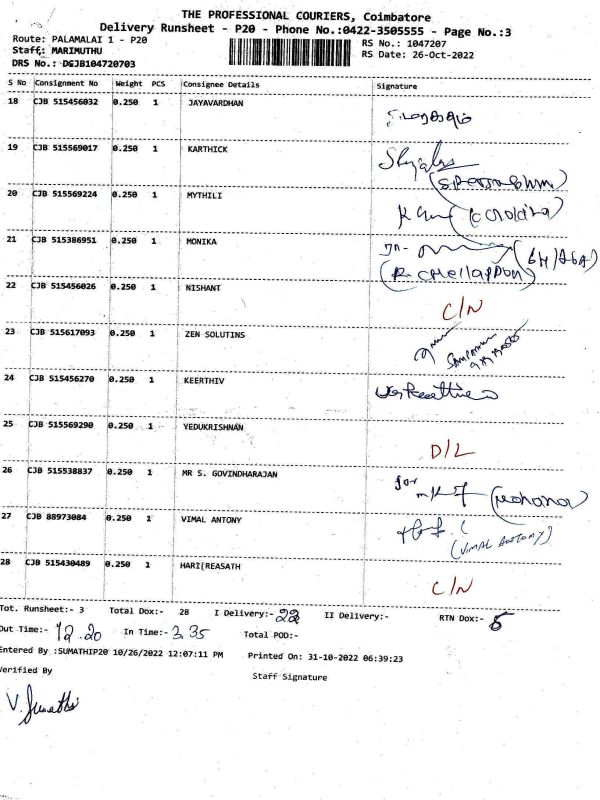 THE PROFESSIONAL COURIERS, Coimbatore
Delivery Runsheet - P20 - Phone No.:0422-3505555 - Page No.:3
Route: PALAMALAI 1 - P20
RS No.: 1047207
Staff: MARIMUTHU
RS Date: 26-Oct-2022
DRS No.: DCJB104720703
S No Consignment No Weight PCS Consignee Details Signature
18 CJB 515456032 0.250 1 JAYAVARDHAN
19 CJB 515569017 0.250 1 KARTHICK
20 CJB 515569224 0.250 1 MYTHILI
21 CJB 515386951 0.250 1 MONIKA
22 CJB 515456026 0.250 1 NISHANT C/N
23 CJB 515617093 0.250 1 ZEN SOLUTINS
24 CJB 515456270 0.250 1 KEERTHIV
25 CJB 515569290 0.250 1 YEDUKRISHNAN D/L
26 CJB 515538837 0.250 1 MR S. GOVINDHARAJAN for (Mohana)
27 CJB 88973084 0.250 1 VIMAL ANTONY (VIMAL ANTONY)
28 CJB 515430489 0.250 1 HARI[REASATH C/N
Tot. Runsheet:- 3 Total Dox:- 28 I Delivery:- 22 II Delivery:- RTN Dox:- 6
Out Time:- 12.20 In Time:- 3.35 Total POD:-
Entered By :SUMATHIP20 10/26/2022 12:07:11 PM Printed On: 31-10-2022 06:39:23
Verified By Staff Signature
V. Sumathi